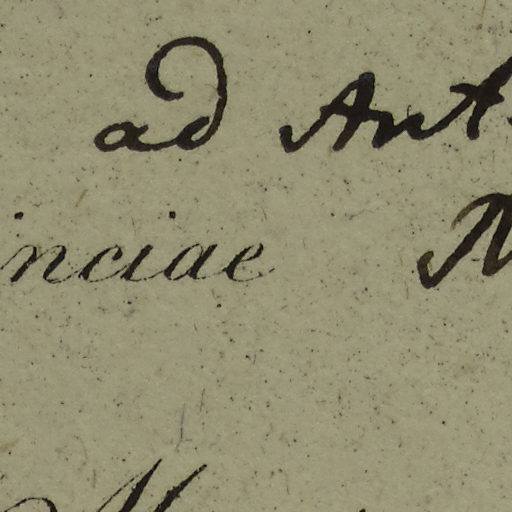 ad Ant
inciae